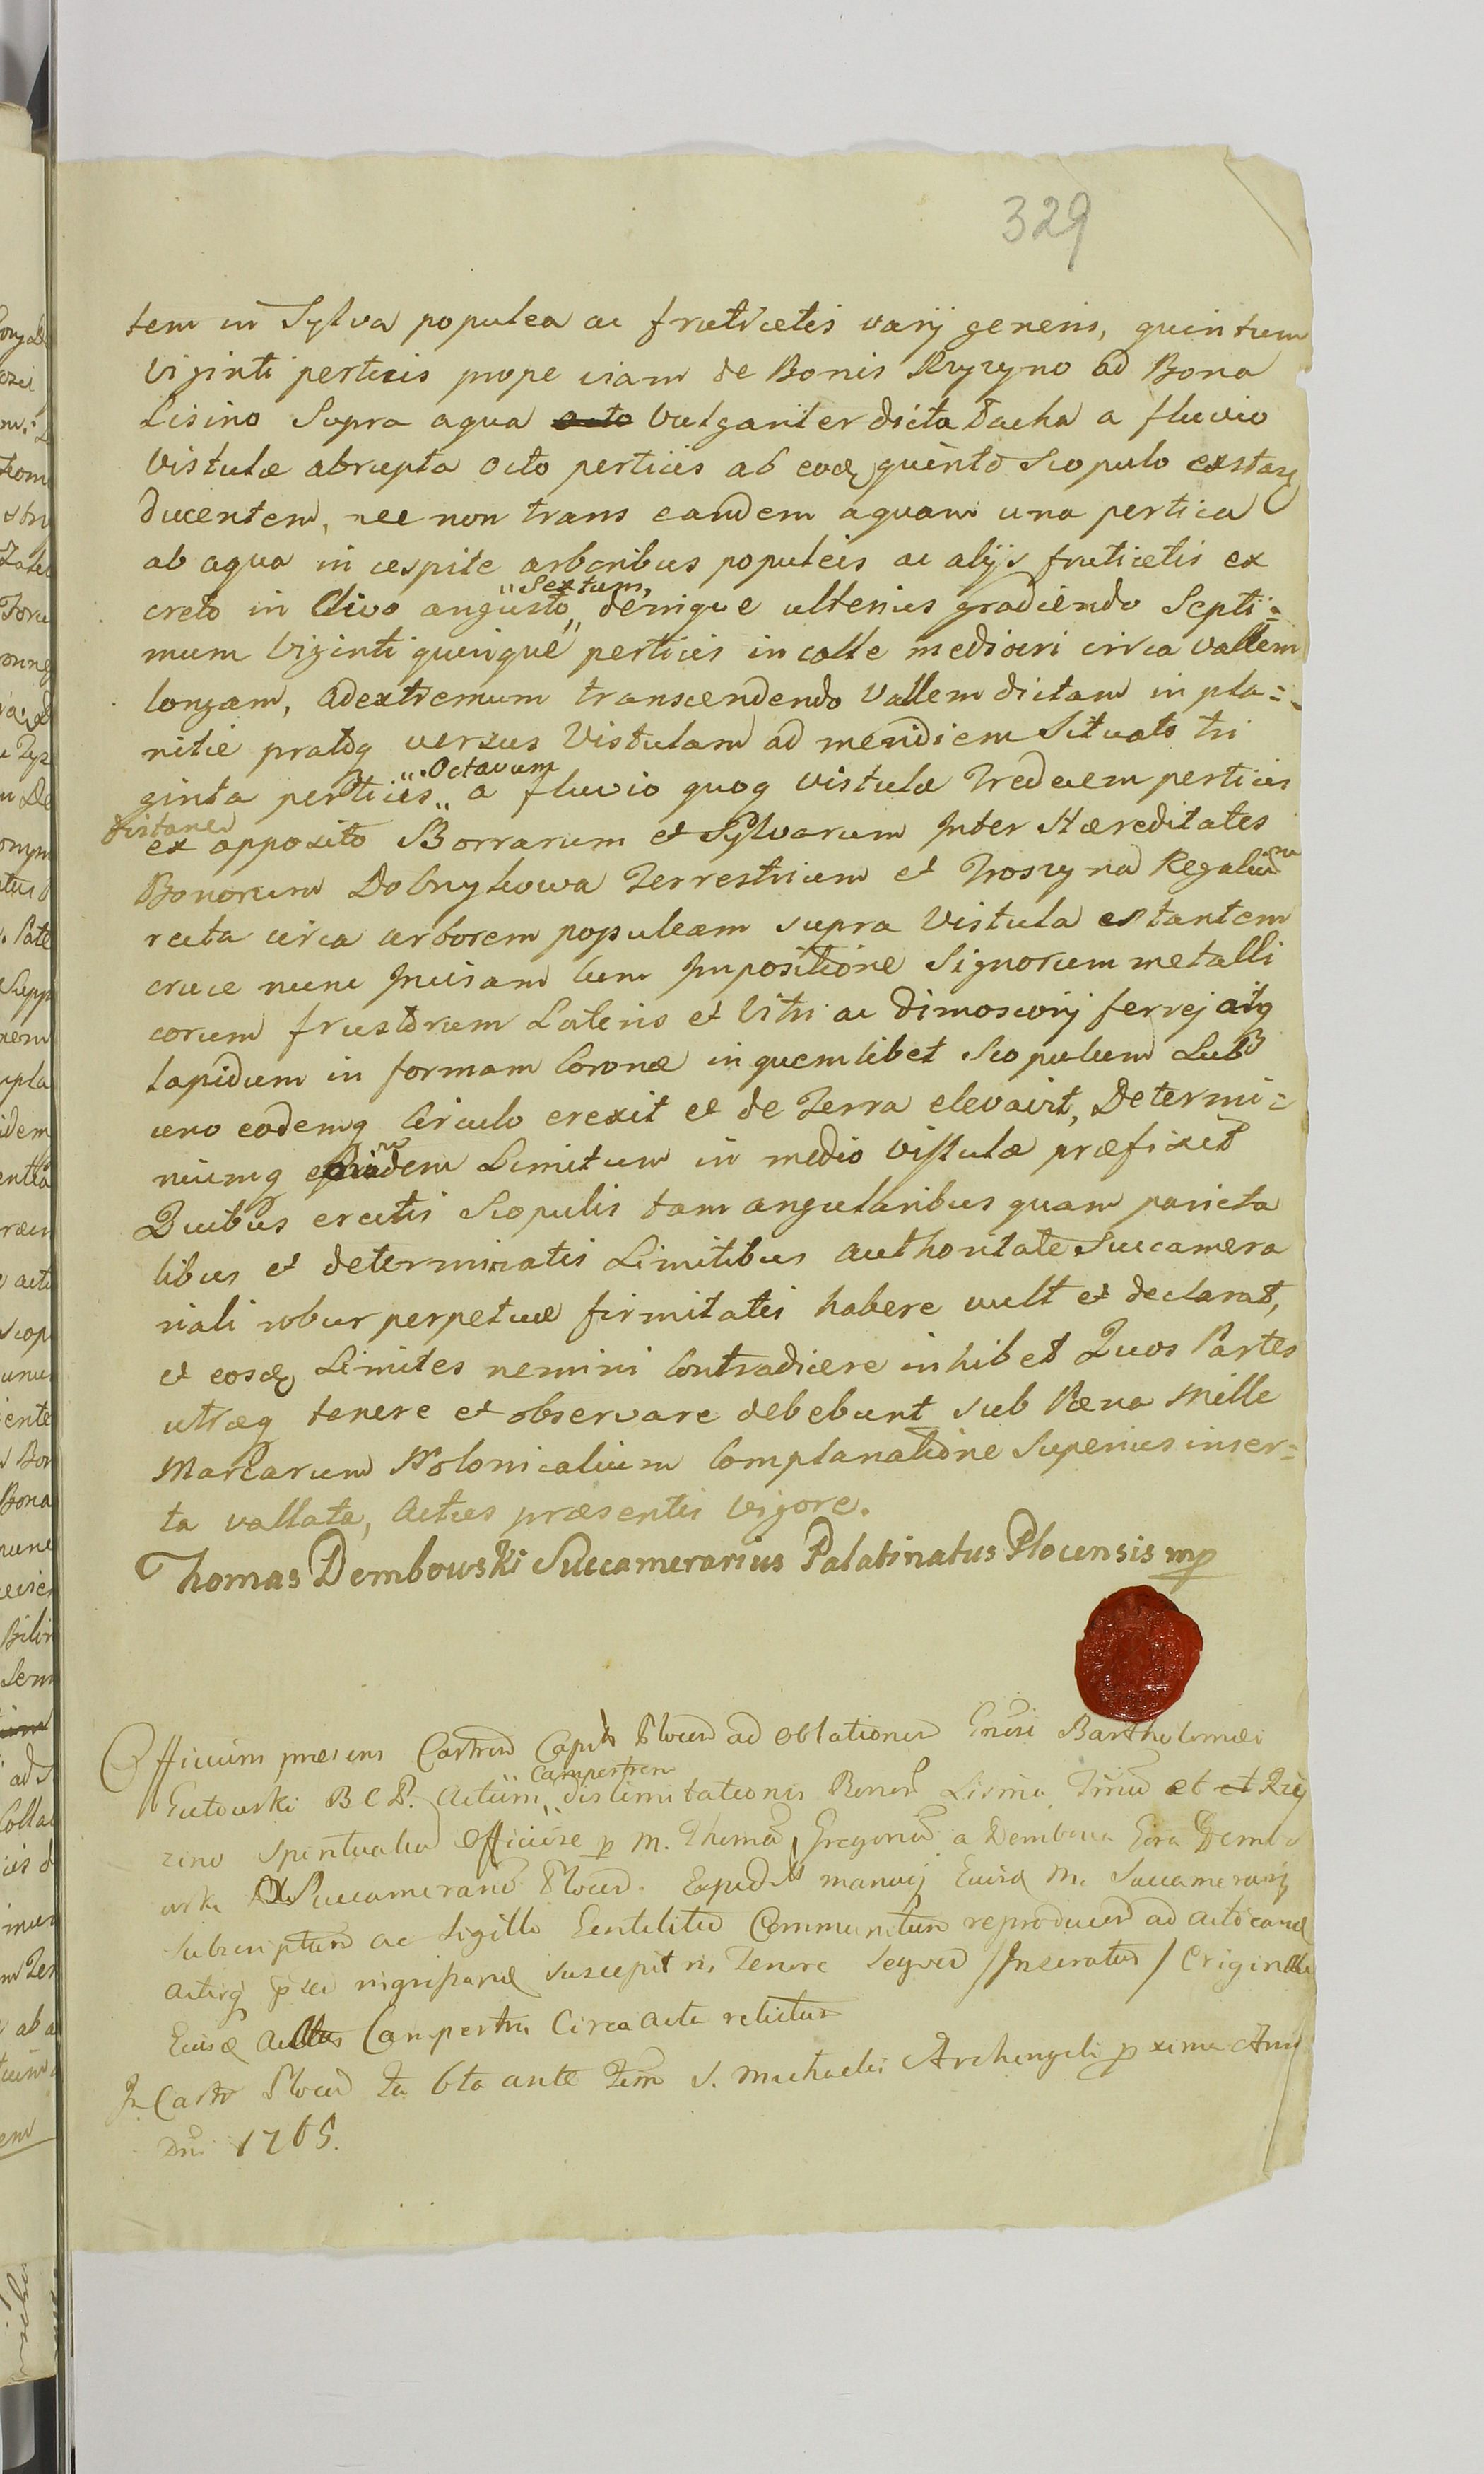 329
tem in Sylva populea ac fruticetis varij generis, quintum
Viginti perticis prope viam de Bonis Rzyzyno ad Bona
Lisino Supra aqua octo Vulgariter dicta Łacha a fluvio
Vistulæ abrupta octo perticis ab eođ quinto Scopulo exstan
ducentem, nec non trans eandem aquam una pertica
ab aqua in cespite arboribus populeis ac alijs fruticetis ex
creto in Clivo angusto „Sextum, denique ulterius gradiendo Septi=
mum Viginti quinque perticis in colle mediocri circa vallem
longam, ad extremum transcendendo Vallem dictam in pla=
nitie pratoq versus Vistulam ad meridiem Situato tri
ginta perticis „Octavum a fluvio quoq Vistulæ Tredecem perticis
distanem
ex opposito Borrarum et Sylvarum Inter Hæreditates
Bonorum Dobrzykowa Terrestrium et Troszyna Regalium
recta circa arborem populeam supra Vistula extantem
cruce nunc Incisam Cum Impositione Signorum metalli
corum frustorum Lateris et Vitri ac dimoscorij ferrej atq
Lapidum in formam Coronæ in quemlibet Scopulum Sub
uno eodemq Circulo erexit et de Terra elevavit, Determi=
numq Limitum in medio Vistulæ præfixit
Quibus erectis Scopulis tam angularibus quam parieta
libus et determinatis Limitibus authoritate Succamera
riali robur perpetuæ firmitatis habere vult et declarat,
et eosđ Limites nemini Contradicere inhibet Quos Partes
utræq tenere et observare debebunt sub Pæna Mille
Marcarum Polonicalium Complanatione Superius inser=
ta vallata, Actus præsentis Vigore.
Thomas Dembowski Succamerarius Palatinatus Plocensis mp
Officium præsens Castren Capit Plocen ad oblationem Gnosi Bartholomæi
Gutowski B C P. Actum Campestrem distimitationis Bonor Lisino et et Rzy
zino Spiritualium Officiose p M. Thomam Gregorium a Dembowa Gora Dembo
wski Succamerarium Plocen. Exped manuq Eiusđ M. Succamerarij
subscriptum ac Sigillo Gentilitio Communitum reproducen ad acticanđ
actisq suscepit in Tenore Sequen / Inseratur / Originale
Eiusđ Actus Campestris Circa acta relictum
In Castro Plocen Fa 6ta ante Fem S. Michaelis Archangeli pxima Anno
Dni 1765.